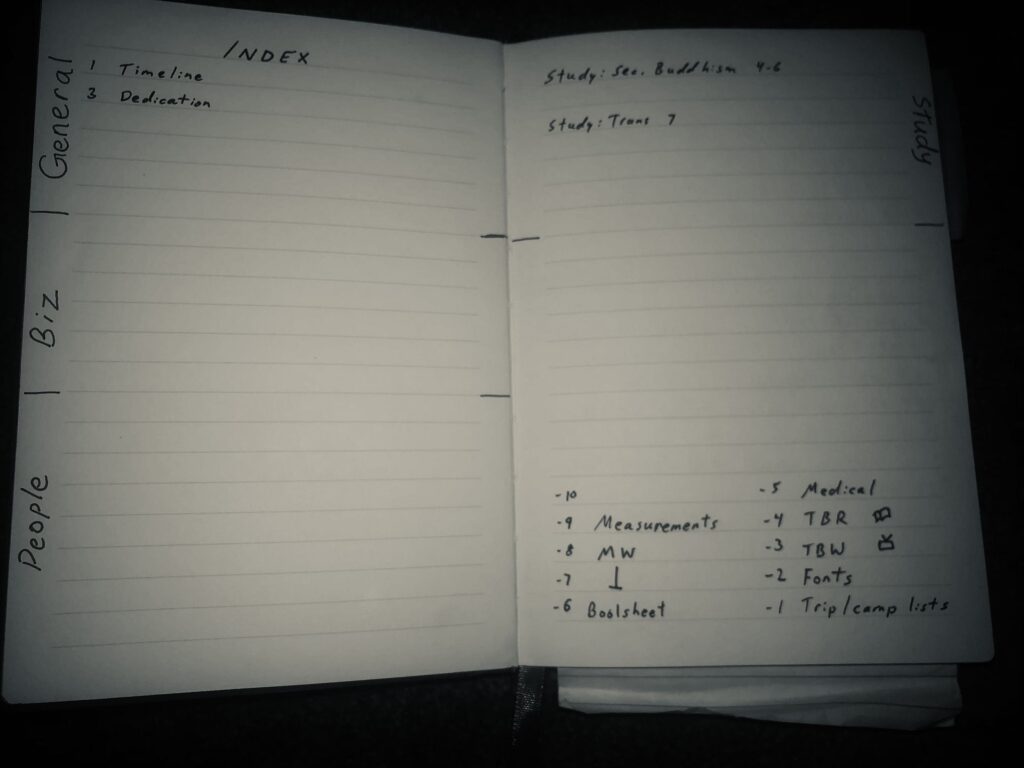 INDEX
1 Timeline
3 Dedication
General
Biz
People
Study: Sec. Buddhism 4-6
Study: Trans 7
Study
-10
-9 Measurements
-8 MW
-7
-6 Boolsheet
-5 Medical
-4 TBR
-3 TBW
-2 Fonts
-1 Trip/camp lists